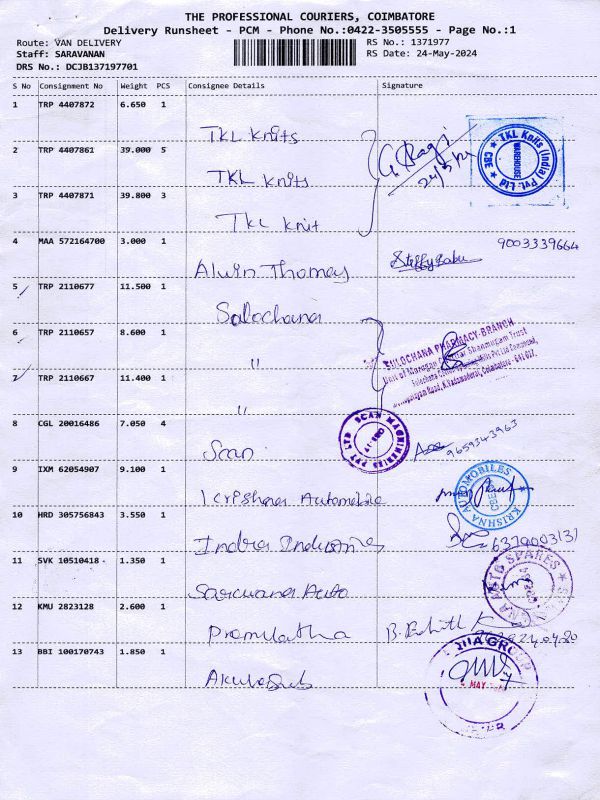 THE PROFESSIONAL COURIERS, COIMBATORE
Delivery Runsheet - PCM - Phone No.:0422-3505555 - Page No.:1
Route: VAN DELIVERY RS No.: 1371977
Staff: SARAVANAN RS Date: 24-May-2024
DRS No.: DCJB137197701
S No Consignment No Weight PCS Consignee Details Signature
1 TRP 4407872 6.650 1
TKL Knits
2 TRP 4407861 39.000 5
TKL Knits
TKL Knits (India) Pvt. Ltd
WAREHOUSE
CBE
3 TRP 4407871 39.800 3
TKL Knit
4 MAA 572164700 3.000 1 9003339664
Alwin Thomas
5 TRP 2110677 11.500 1
Sulochana
6 TRP 2110657 8.600 1
"
SULOCHANA PHARMACY-BRANCH.
7 TRP 2110667 11.400 1
"
8 CGL 20016486 7.050 4
Scan 9659343963
SCAN MACHINERIES PVT LTD
9 IXM 62054907 9.100 1
Krishna Automobile
KRISHNA AUTOMOBILES
10 HRD 305756843 3.550 1
Indra Industries 6379003131
11 SVK 10510418 1.350 1
Saravana Auto
AUTO SPARES
12 KMU 2823128 2.600 1
Promilatha
13 BBI 100170743 1.850 1
GROUP
MAY